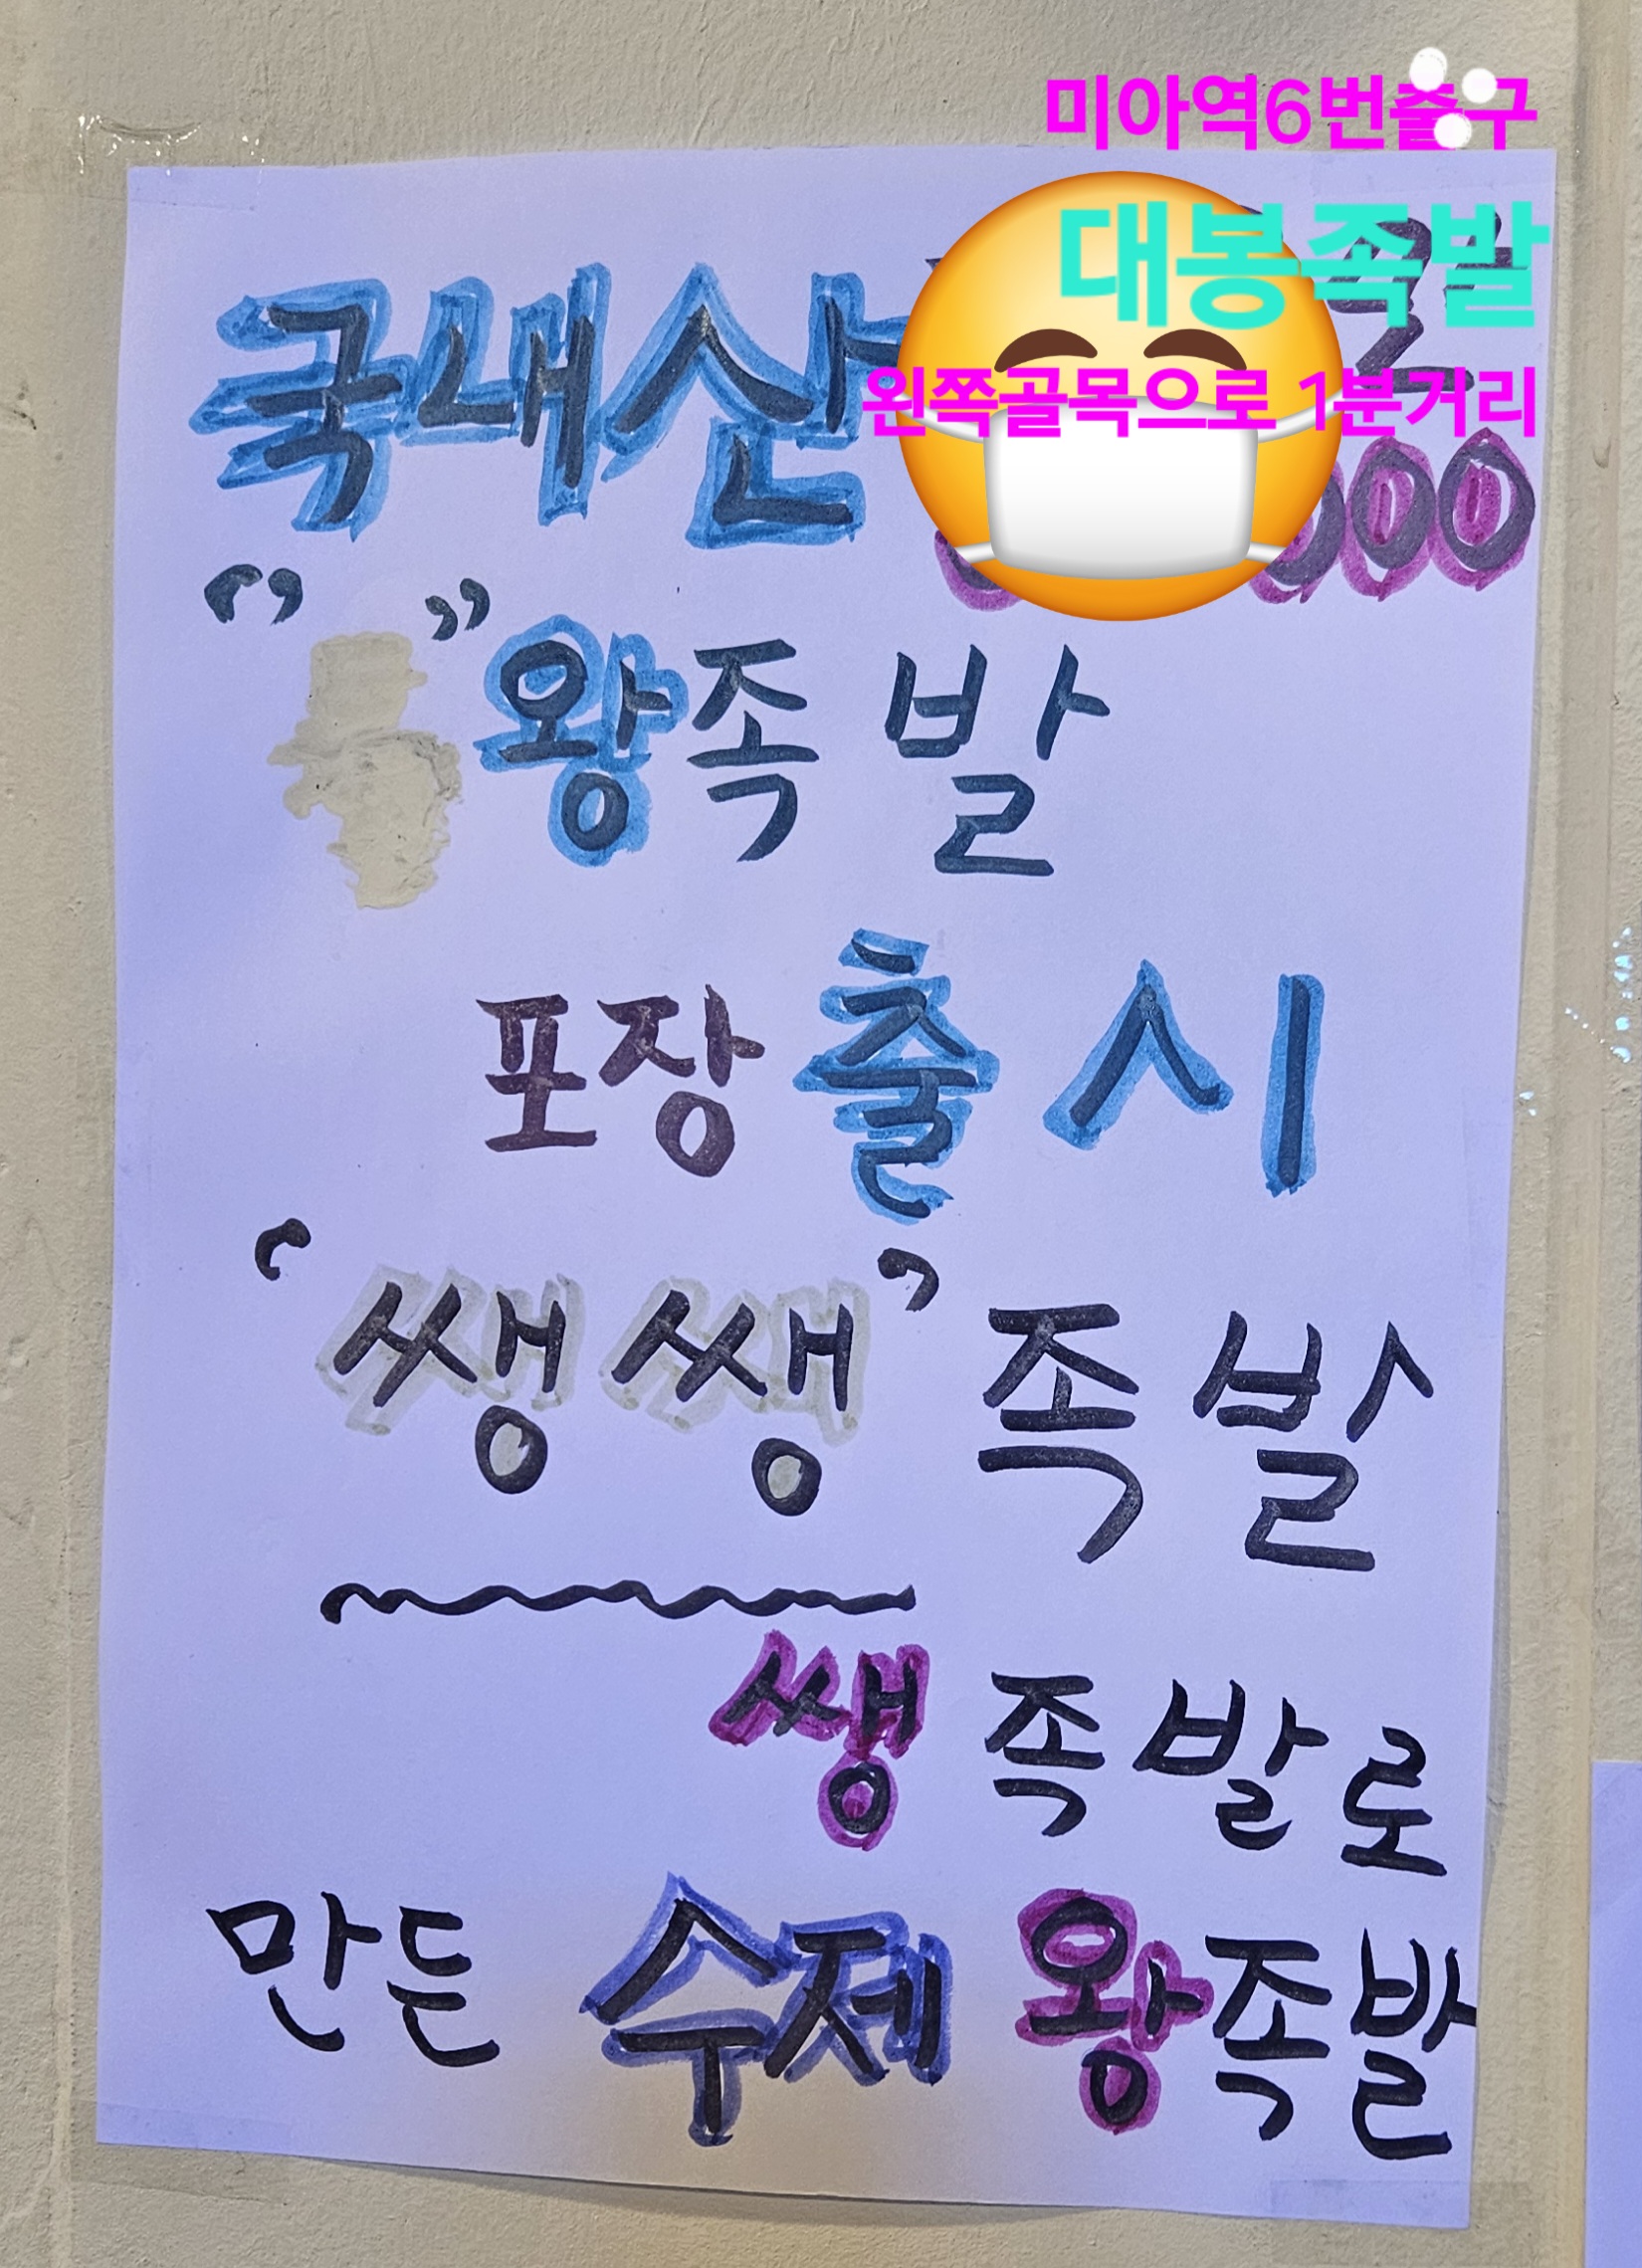 미아역6번출구
대봉족발
왼쪽골목으로 1분거리
국내산
000
" " 왕족발
포장 출시
'쌩쌩' 족발
쌩 족발로
만든 수제 왕족발